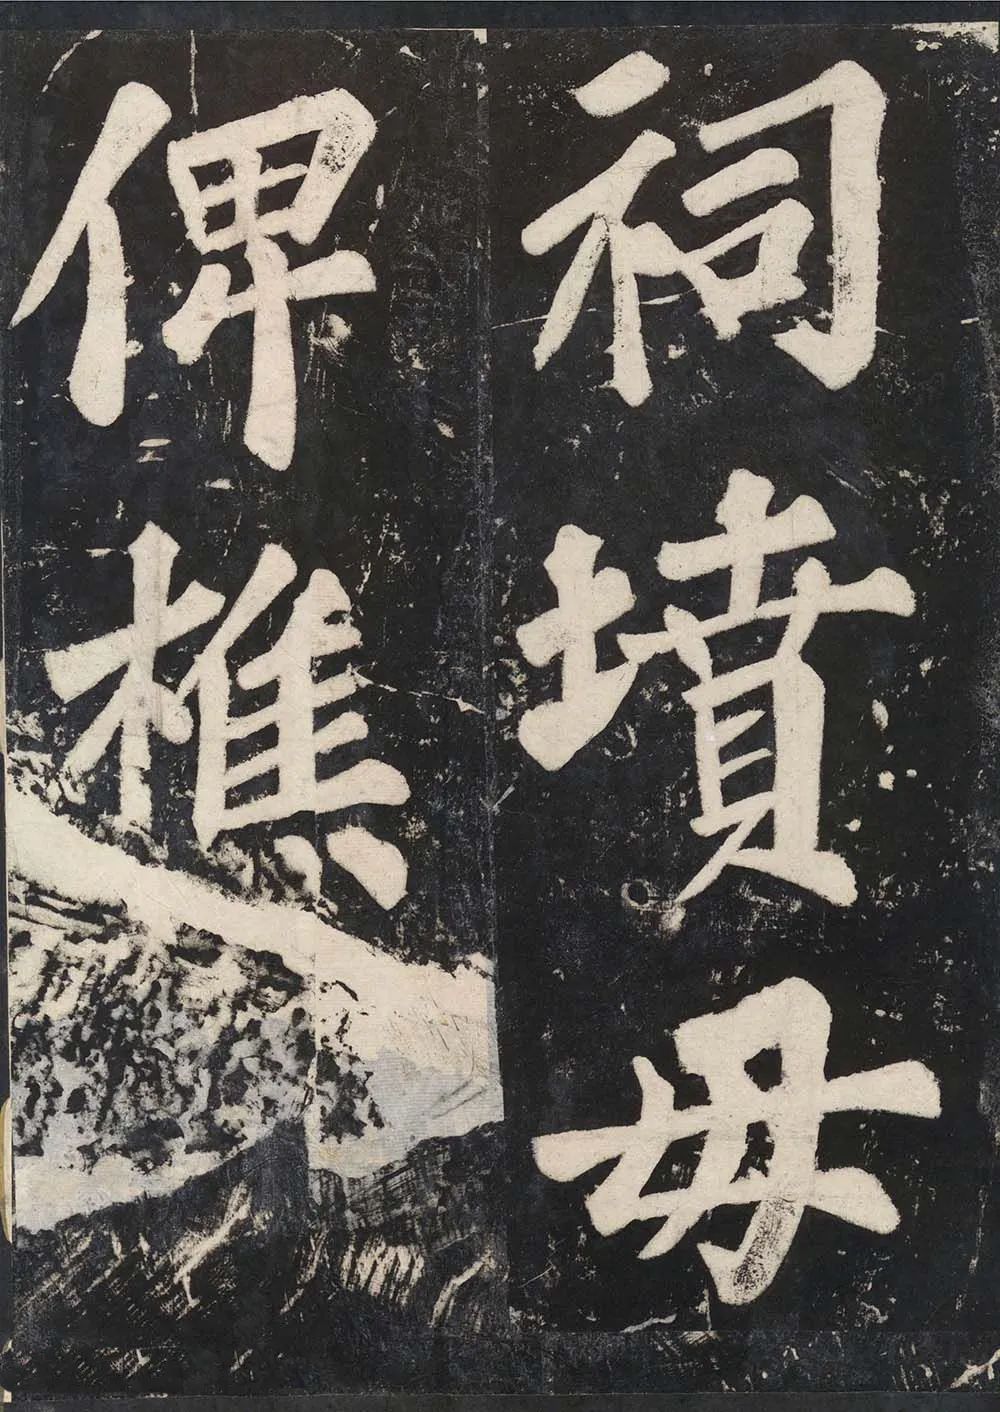 祠墳毋
俾樵